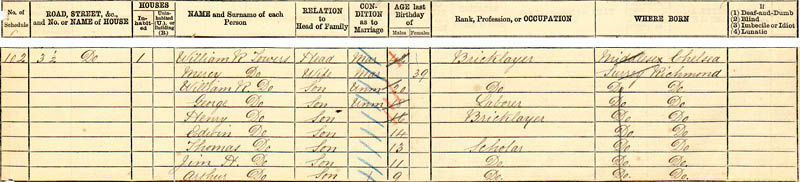 No. of Schedule ROAD, STREET, &c., and No. or NAME of HOUSE HOUSES In-habit-ed Unin-habited (U.), or Building (B.) NAME and Surname of each Person RELATION to Head of Family CON-DITION as to Marriage AGE last Birthday of Males Females Rank, Profession, or OCCUPATION WHERE BORN If (1) Deaf-and-Dumb (2) Blind (3) Imbecile or Idiot (4) Lunatic
102 3½ Do 1 William R. Towers Head Mar Bricklayer Middlesex Chelsea
Mercy Do Wife Mar 39 Surrey Richmond
William R. Do Son Unm 20 Do Do Do
George Do Son Unm Laborer Do Do
Henry Do Son 16 Bricklayer Do Do
Edwin Do Son 14 Do Do
Thomas Do Son 13 Scholar Do Do
Jim H. Do Son 11 Do Do Do
Arthur Do Son 9 Do Do Do